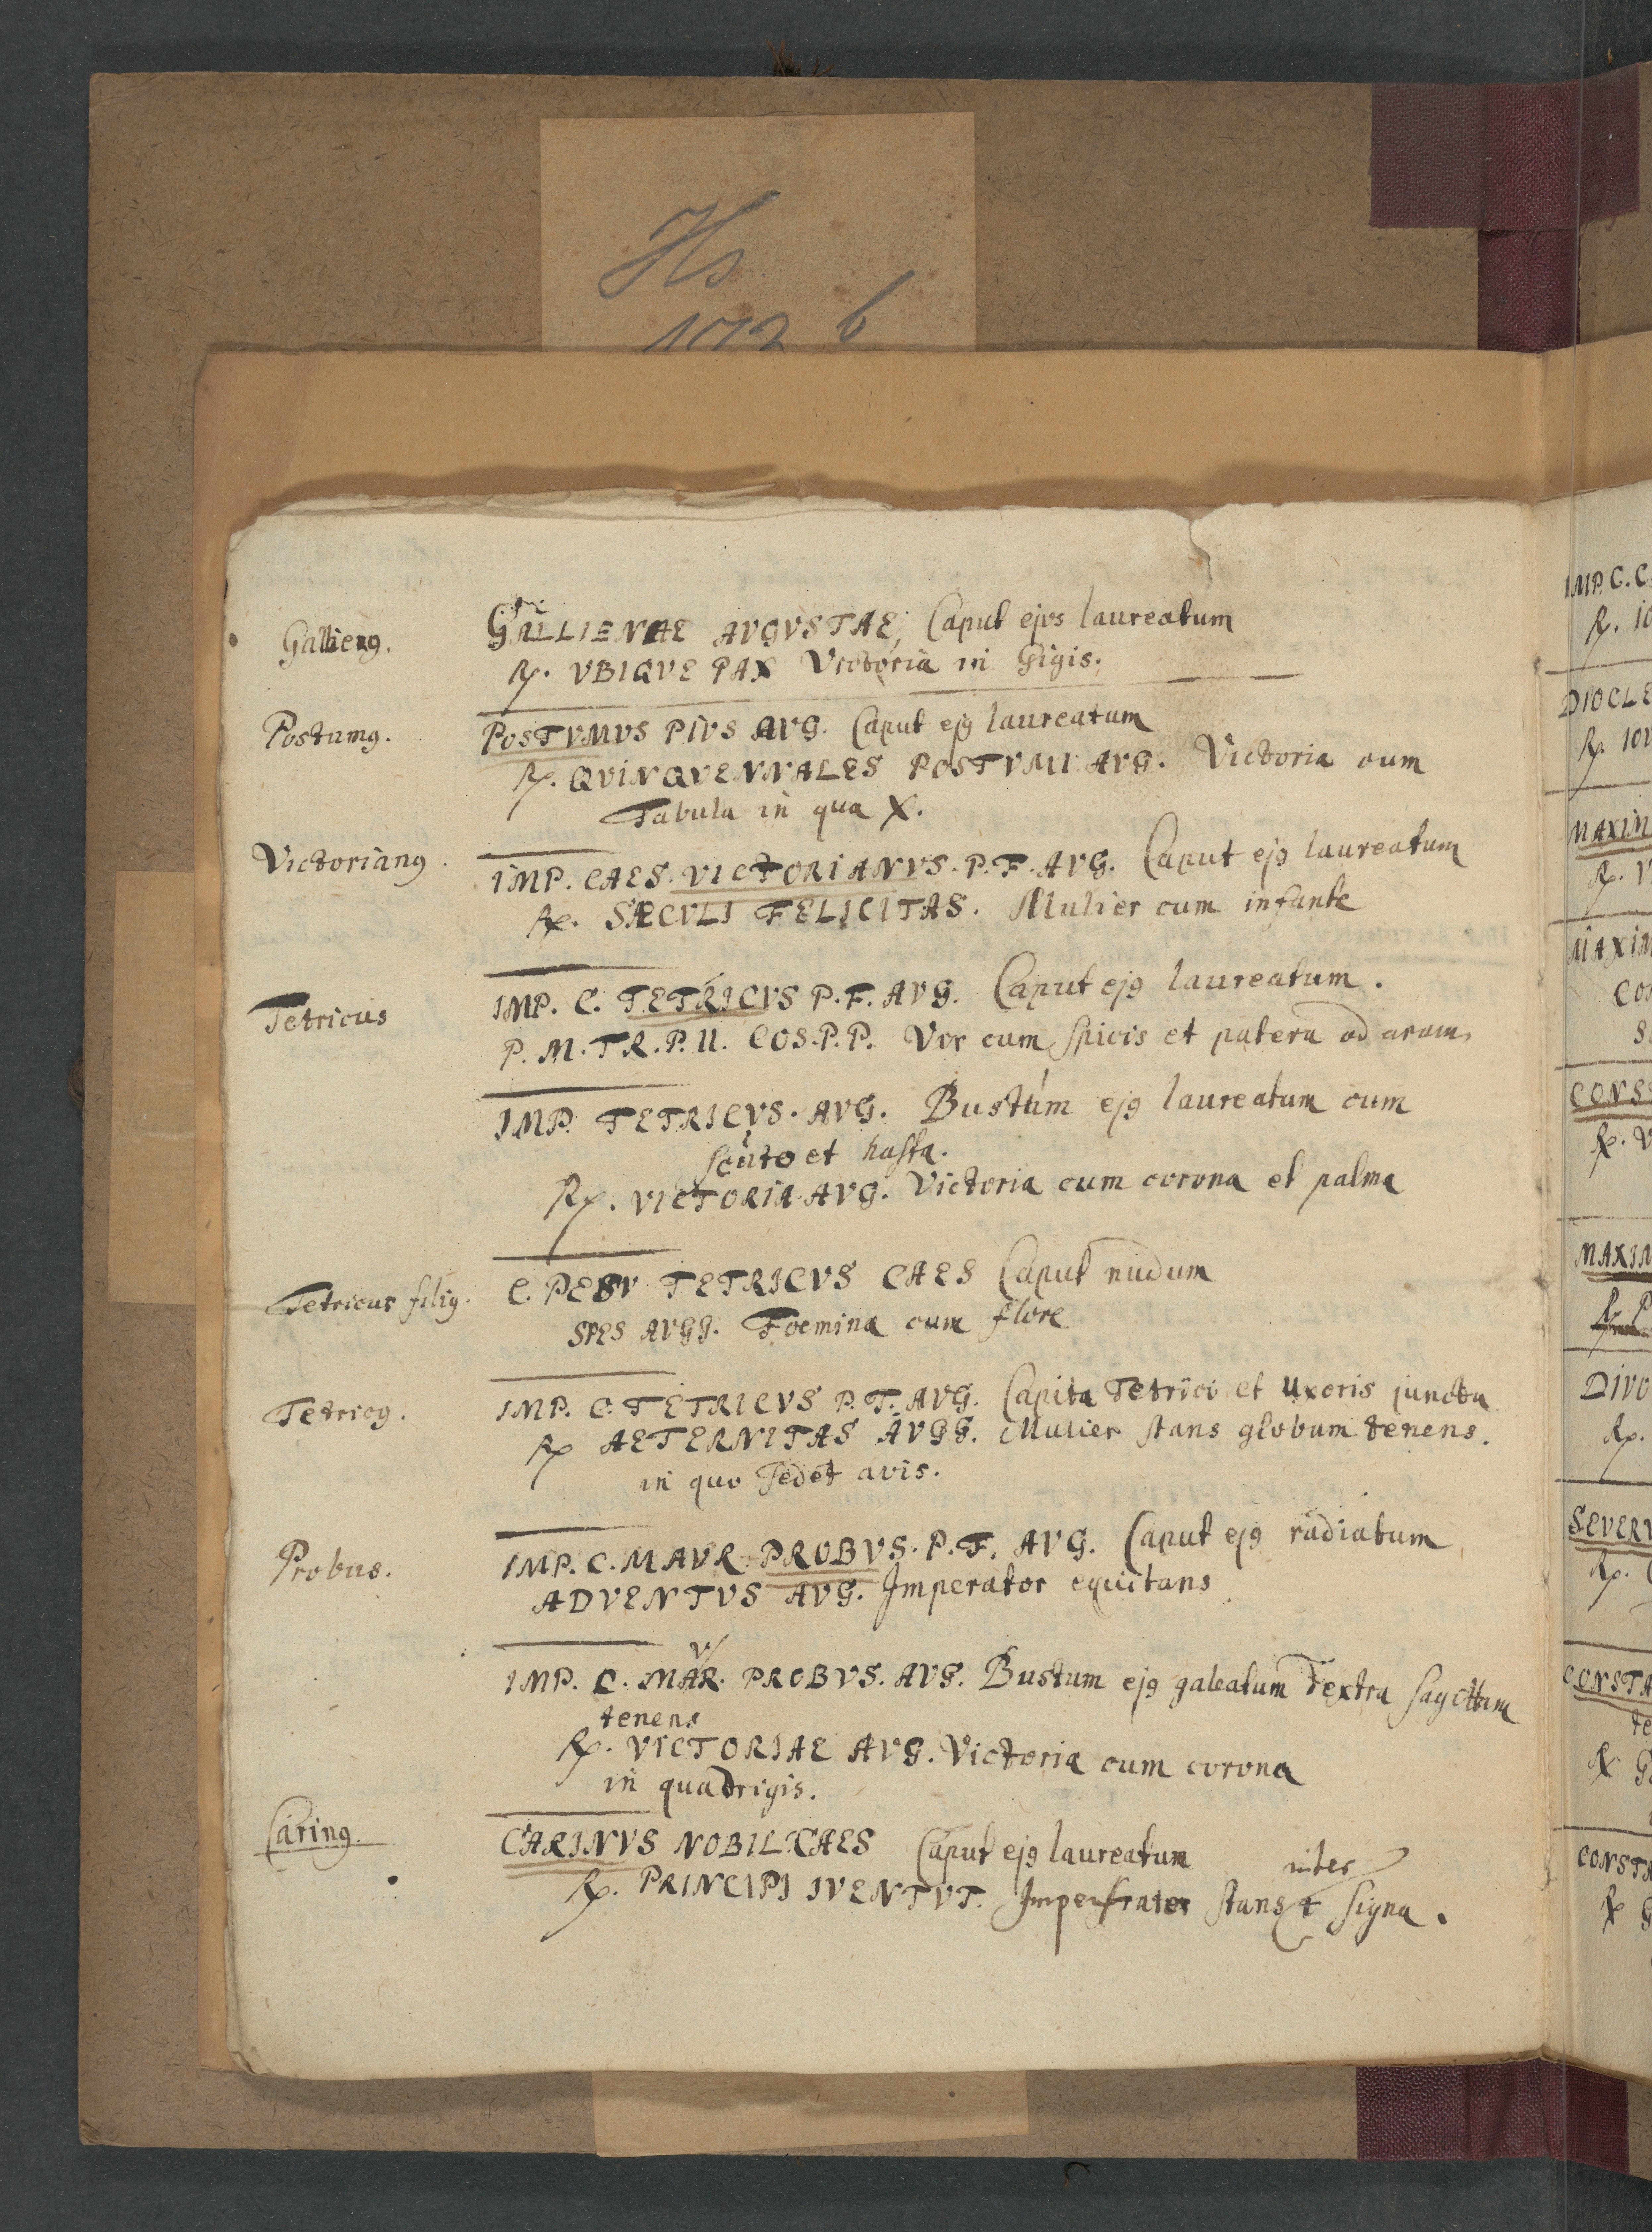 Hs
172 b
Gallieng.
GALLIENAE AVGVSTAE, Caput ejus laureatum
R. VBIQVE PAX Victoria in bigis.
Postumg.
POSTVMVS PIVS AVG. Caput ejg laureatum
R. QVINQVENNALES POSTVMI AVG. Victoria cum
Tabula in qua X.
Victoriang.
IMP. CAES. VICTORIANVS. P. F. AVG. Caput ejg laureatum
R. SÆCVLI FELICITAS. Mulier cum infante
Tetricus
IMP. C. TETRICVS P. F. AVG. Caput ejg laureatum.
P. M. TR. P. II. COS. P. P. Vir cum spicis et patera ad aram.
IMP. TETRICVS. AVG. Bustum ejg laureatum cum
scuto et hasta.
R. VICTORIA AVG. Victoria cum corona et palma
Tetricus filig.
C. PESV TETRICVS CAES Caput nudum
SPES AVGG. Foemina cum flore
Tetricg.
IMP. C. TETRICVS P. F. AVG. Capita Tetrici et Uxoris juncta
R AETERNITAS AVGG. Mulier stans globum tenens.
in quo sedet avis.
Probus.
IMP. C. M AVR. PROBVS. P. F. AVG. Caput ejg radiatum
ADVENTVS AVG. Imperator equitans
V
IMP. C. MAR. PROBVS. AVG. Bustum ejg galeatum dextra sagittam
tenens
R. VICTORIAE AVG. Victoria cum corona
in quadrigis.
Caring.
CARINVS NOBIL CAES Caput ejg laureatum
inter
R. PRINCIPI IVENTVT. Imperator stans signa.
IMP. C. C
R. IO
DIOCLE
R. IOV
MAXIM
R. V
MAXIM
CO
S
CONS
R. V
MAXIM
R P
DIVO
R.
SEVERV
R. C
CONSTA
te
R G
CONSTA
R G